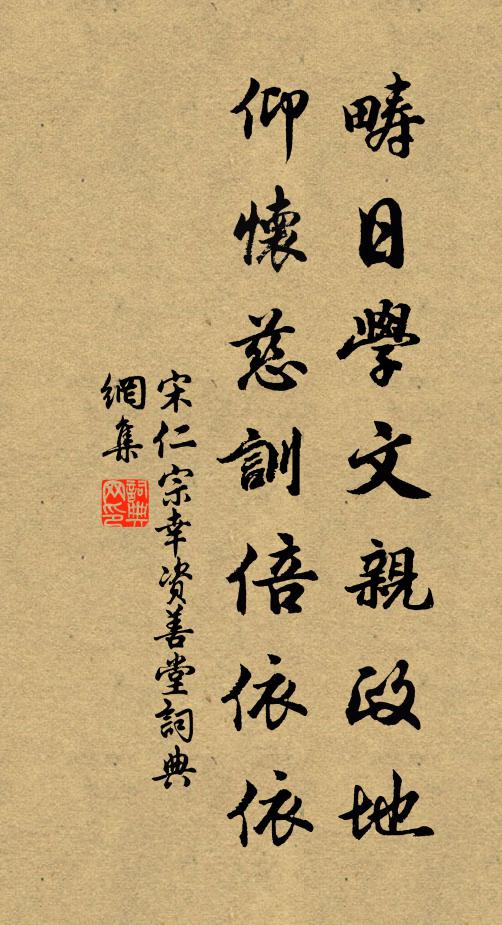 疇日學文親政地
仰懷慈訓倍依依
宋仁宗幸资善堂詞典
網集
詞典
网印